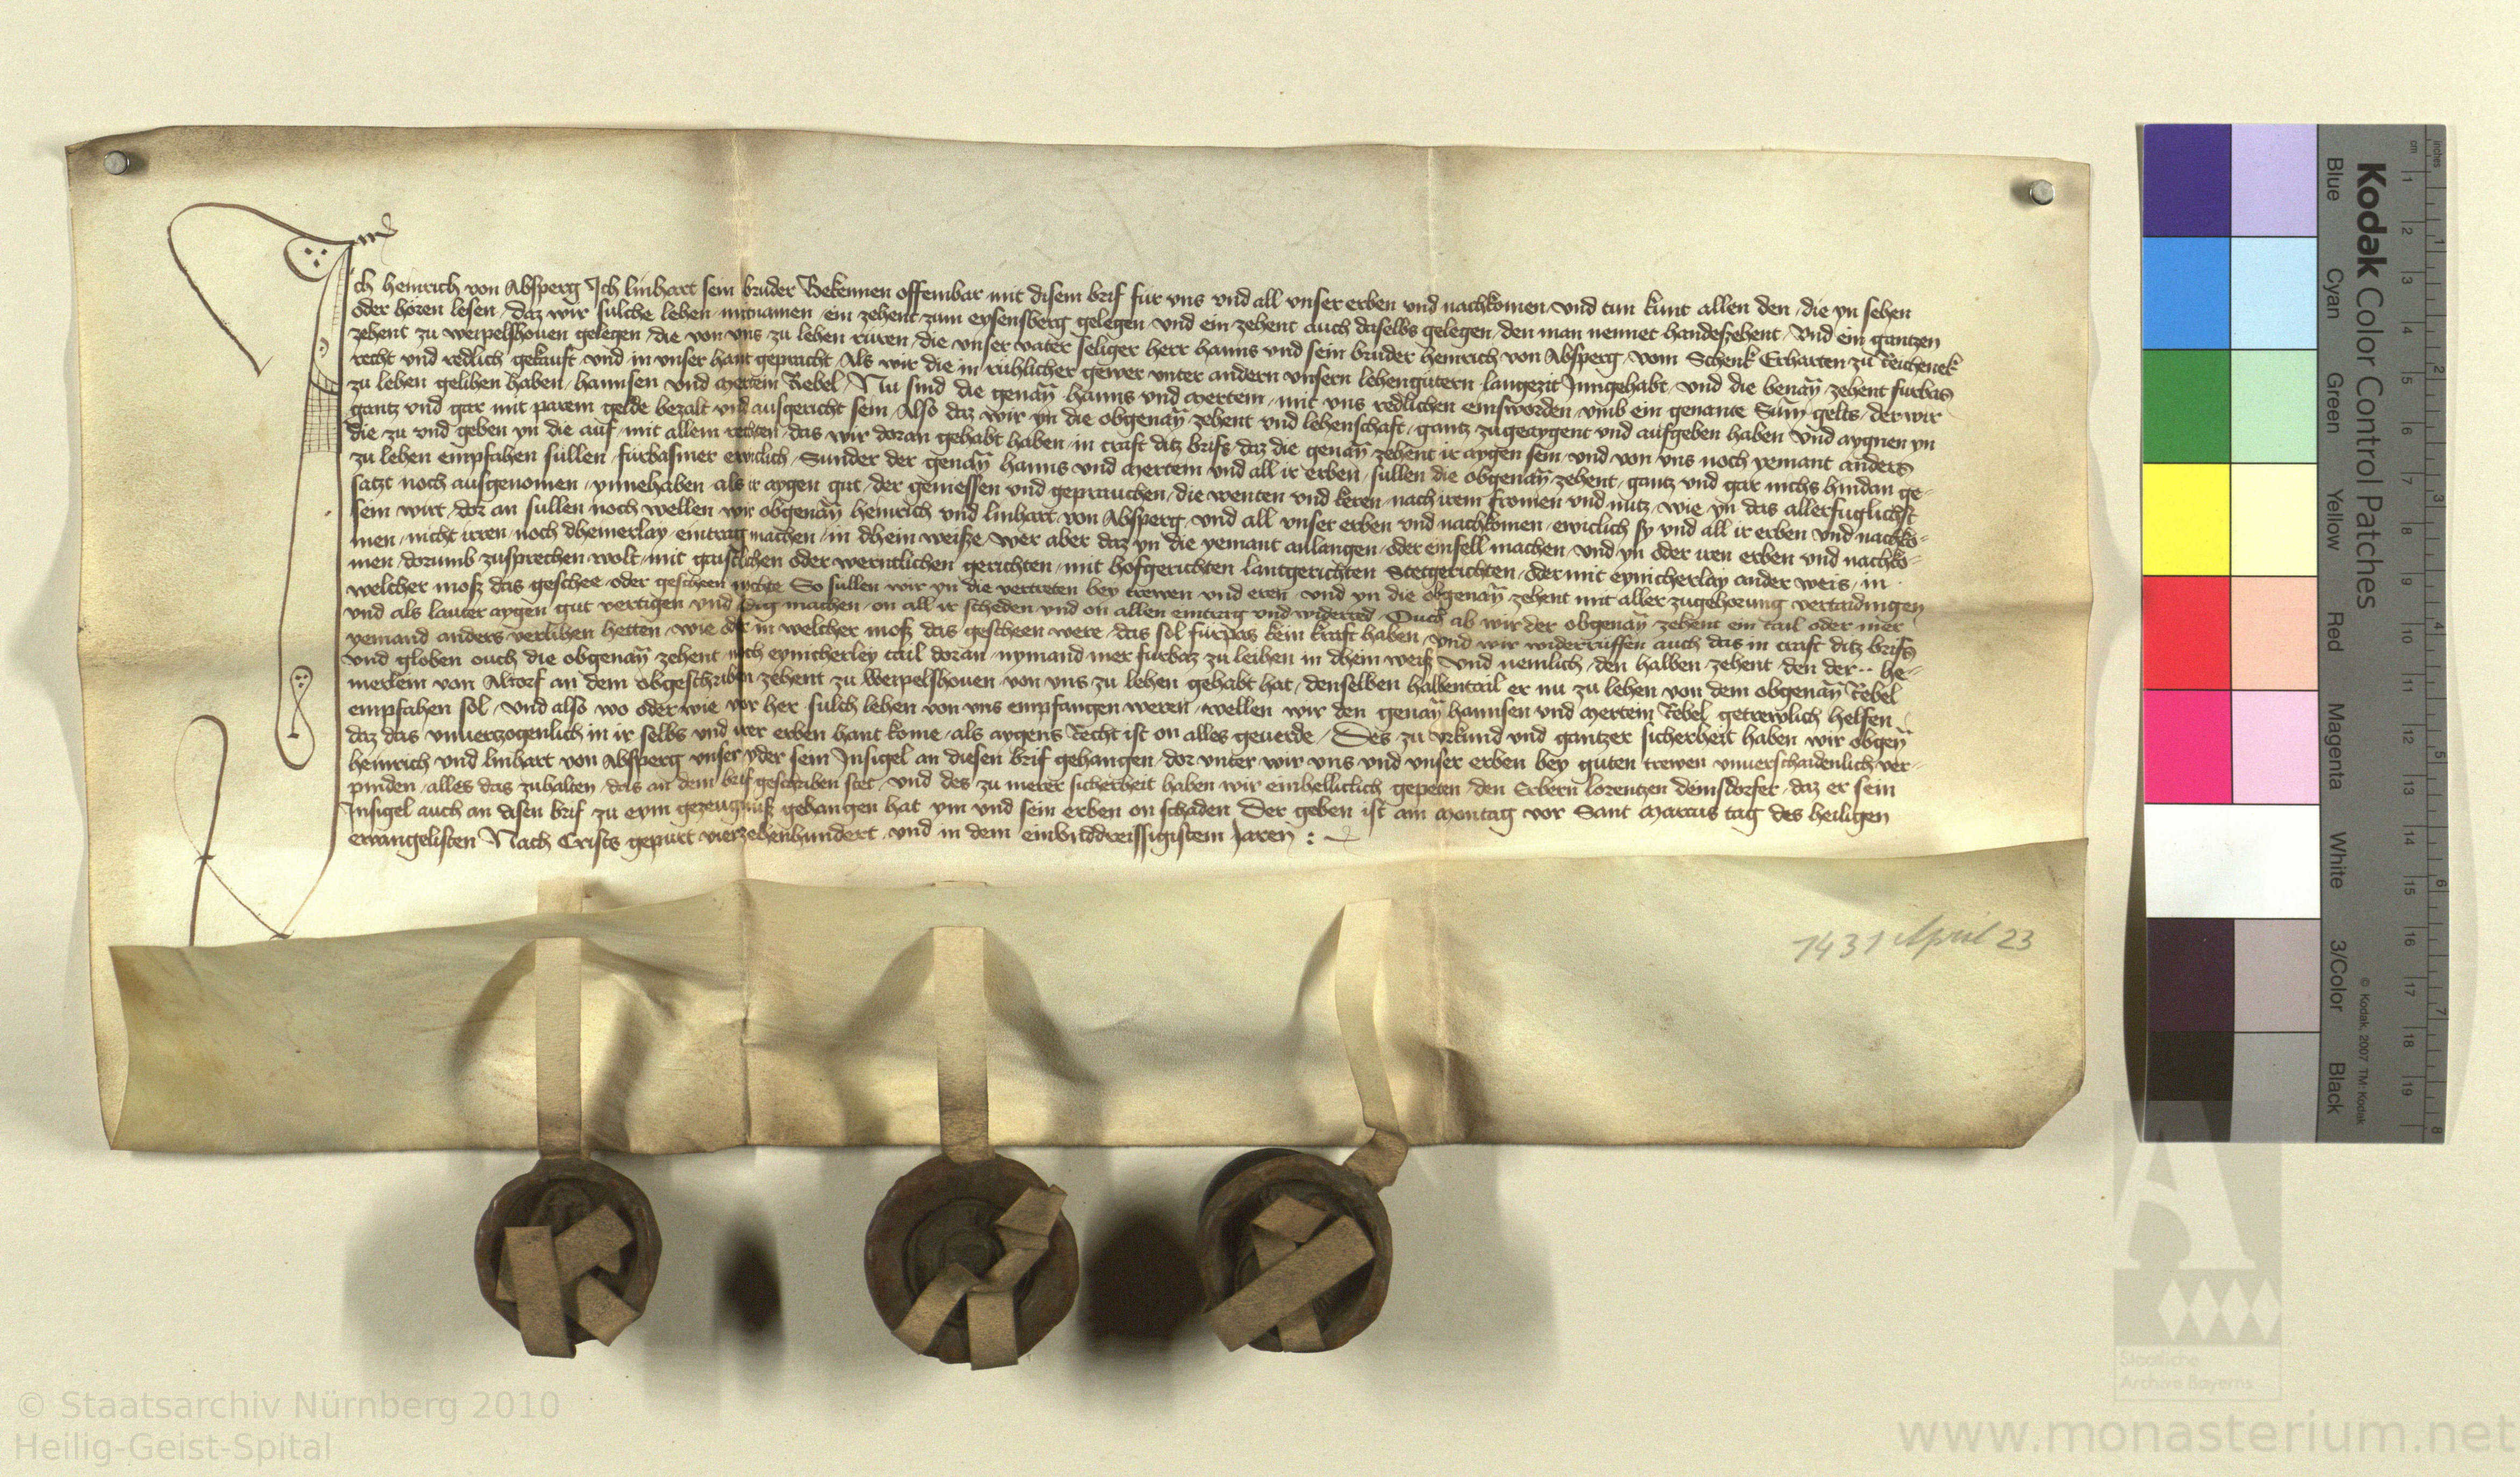 Ich heinrich von Absperg Ich linhart sein bruder Bekennen offembar mit disem brif fur vns vnd all vnser erben vnd nachkomen vnd tun kunt allen den die yn sehen
oder hören lesen daz wir sulche lehen mitnamen ein zehent zum eysensberg gelegen vnd ein zehent auch daselbs gelegen den man nennet handeszehent Vnd ein gantzen
zehent zu weipelshouen gelegen die von vns zu lehen rüren die vnser vater seliger herr hanns vnd sein bruder heinrich von Absperg vom Schenk Erharten zu Reichenek
recht vnd redlich gekauft vnd in vnser hant gepracht Als wir die in rühlicher gewer vnter andern vnsern lehengütern langezit Inngehabt vnd die benan̄ zehent furbas
zu lehen gelihen haben hannsen vnd mertein Rebel Nu sind die genan̄ hanns vnd mertein mit vns redlichen einsworden vmb ein genante Sum̄ gelts der wir
gantz vnd gar mit parem gelde bezalt vnd ausgericht sein Also daz wir yn die obgenan̄ zehent vnd lehenschaft gantz zugeaygent vnd aufgeben haben Vnd aygnen yn
die zu vnd geben yn die auf mit allem rechten das wir doran gehabt haben in craft ditz brifs daz die genan̄ zehent ir aygen sein vnd von vns noch yemant anders
zu lehen empfahen süllen furbasmer ewiclich Sunder der genan̄ hanns vnd mertein vnd all ir erben sullen die obgenan̄ zehent gantz vnd gar nichs hindan ge-
satzt noch ausgenomen ynnehaben als ir aygen gut der geniessen vnd geprauchen die wenten vnd keren nach irem fromen vnd nutz wie yn das allerfuglichst
sein wirt dor an sullen noch wellen wir obgenan̄ heinrich vnd linhart von Absperg vnd all vnser erben vnd nachkomen ewiclich sy vnd all ir erben vnd nachko-
men nicht irren noch dheinerlay eintrag machen in dhein weisze wer aber daz yn die yemant anlangen oder einfell machen vnd yn oder iren erben vnd nachko-
men dorumb zusprechen wolt mit gaistlichen oder werntlichen gerichten mit hofgerichten lantgerichten Stetgerichten oder mit eynicherlay ander weis in
welcher mosz das geschee oder gescheen mochte So sullen wir yn die vertreten bey trewen vnd eren vnd yn die obgenan̄ zehent mit aller zugehorung vertaidingen
vnd als lauter aygen gut vertigen vnd ledig machen on all ir scheden vnd on allen eintrag vnd widerred Ouch ab wir der obgenan̄ zehent ein tail oder mer
yemand anders verlihen hetten wie oder in welcher mosz das gescheen were das sol fürpas kein kraft haben vnd wir widerruffen auch das in craft ditz brifs
Vnd globen ouch die obgenan̄ zehent noch eynicherley tail doran nymand mer furbaz zu leihen in dhein weisz Vnd nemlich den halben zehent den der he-
merlein von Altorf an dem obgeschriben zehent zu Weipelshouen von vns zu lehen gehabt hat denselben halbentail er nu zu lehen von dem obgenan̄ Rebel
empfahen sol vnd also wo oder wie vor her sulch lehen von vns empfangen weren wellen wir den genan̄ hannsen vnd mertein Rebel getrewlich helfen
daz das vnuerzogenlich in ir selbs vnd irer erben hant kome als aygens Recht ist on alles geuerde Des zu vrkund vnd gantzer sicherheit haben wir obgen̄
heinrich vnd linhart von Absperg vnser yder sein Insigel an diesen brif gehangen dor vnter wir vns vnd vnser erben bey guten trewen vnuerschaidenlich ver-
pinden alles das zuhalten das an dem brif geschriben stet vnd des zu merer sicherheit haben wir einhelliclich gepeten den Erbern lorentzen deinsdorfer daz er sein
Insigel auch an disen brif zu eym gezeugnüsz gehangen hat ym vnd sein erben on schaden Der geben ist am montag vor Sant Marcus tag des heiligen
ewangelisten Nach Crists gepurt vierzehenhundert vnd in dem einvnddreissigistem Jaren :
1431 April 23
Kodak Color Control Patches
Blue Cyan Green Yellow Red Magenta White 3/Color Black
© Kodak, 2007 TM: Kodak
inches 1 2 3 4 5 6 7 8
cm 1 2 3 4 5 6 7 8 9 10 11 12 13 14 15 16 17 18 19
Staatliche
Archive Bayerns
© Staatsarchiv Nürnberg 2010
Heilig-Geist-Spital
www.monasterium.net